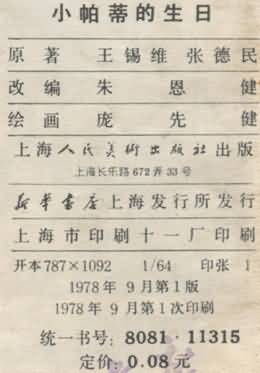 小帕蒂的生日
原著 王锡维 张德民
改编 朱恩健
绘画 庞先健
上海人民美術出版社出版
上海长乐路672弄33号
新华書店上海发行所发行
上海市印刷十一厂印刷
开本787×1092 1/64 印张 1
1978年9月第1版
1978年9月第1次印刷
统一书号：8081·11315
定价：0.08元